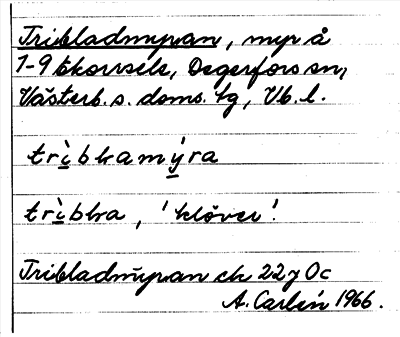 Tribladmyran, myr å
1-9 Ekorrsele, Degerfors sn,
Västerb. s. doms. tg, Vb. l.
trìbbamýra
trìbba, 'klöver'.
Tribladmyran ek 22 J 0c
A. Carlén 1966.